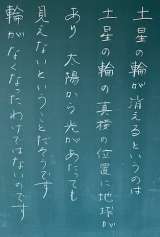 土星の輪が消えるというのは
土星の輪の真横の位置に地球が
あり 太陽から光があたっても
見えないということだろうです
輪がなくなったわけではないのです